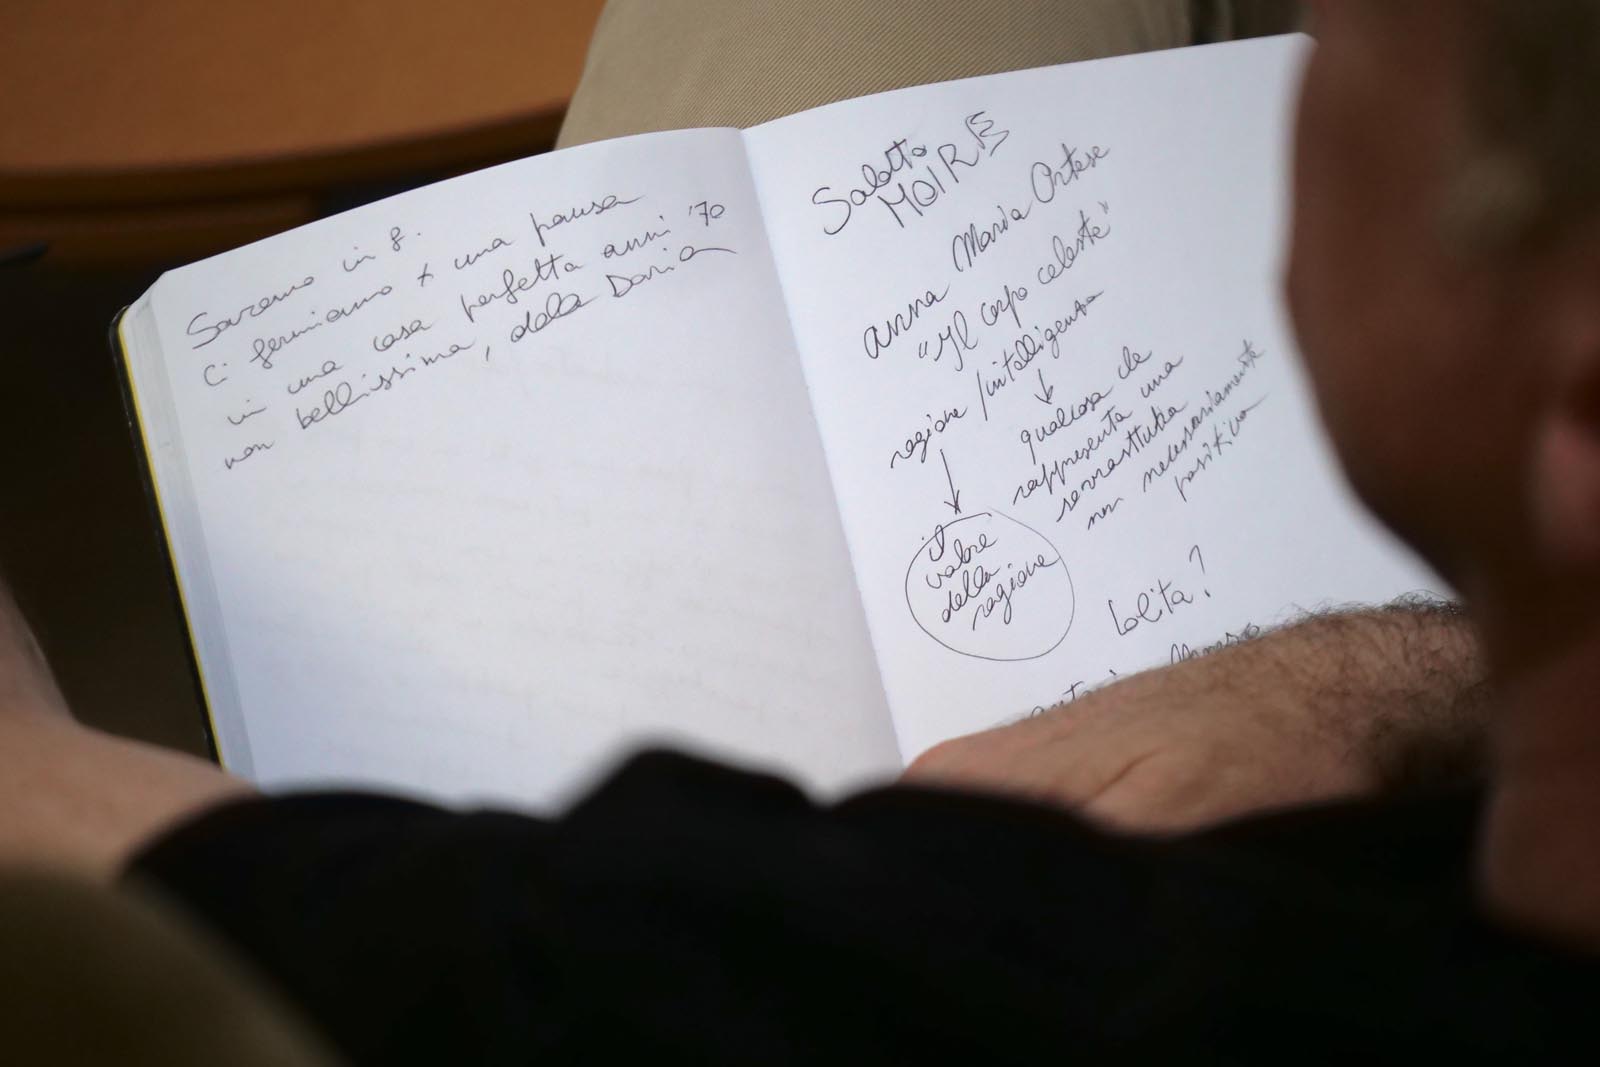 Saremo in 8.
Ci fermiamo x una pausa
in una casa perfetta anni '70
non bellissima, della Daria
Salotto
MOIRE
Anna Maria Ortese
"Il corpo celeste"
ragione / intelligenza
il
valore
della
ragione
qualcosa che
rappresenta una
sovrastruttura
non necessariamente
positiva
Lolita?